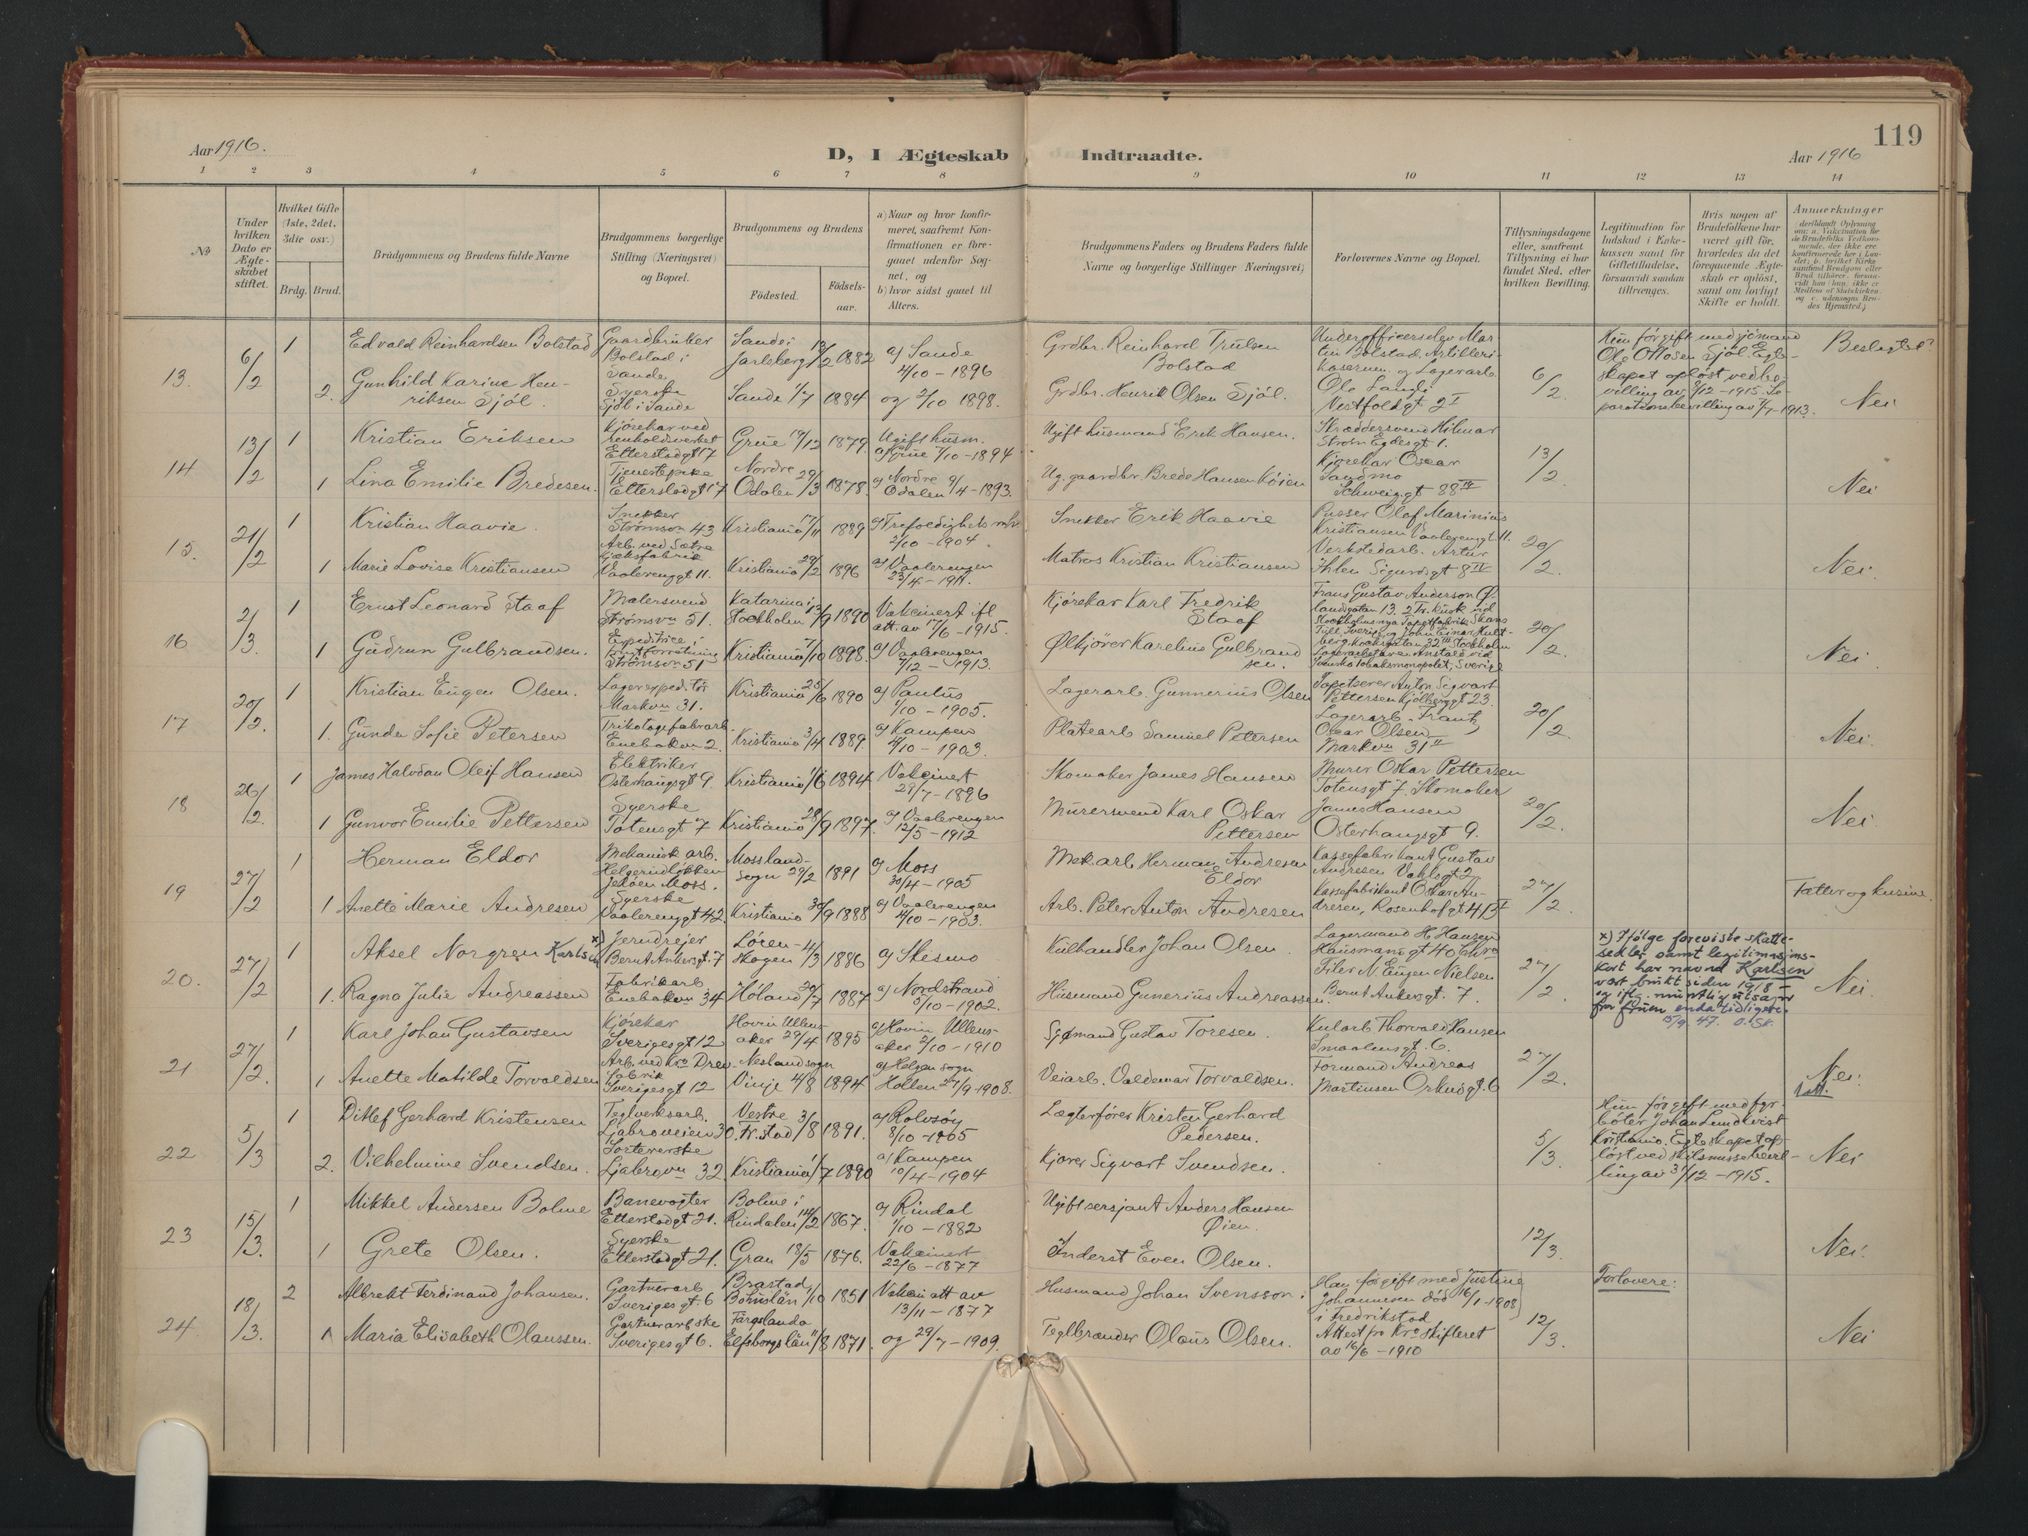 Aar 1916.
D, I Ægteskab Indtraadte.
119
Aar 1916
1 2 3 4 5 6 7 8 9 10 11 12 13 14
No
Under hvilken Dato er Ægteskabet stiftet.
Hvilket Gifte (1ste, 2det, 3die osv.)
Brdg. Brud.
Brudgommens og Brudens fulde Navne
Brudgommens borgerlige Stilling (Næringsvei) og Bopæl.
Brudgommens og Brudens
Fødested. Fødselsaar.
a) Naar og hvor konfirmeret, saafremt Konfirmationen er foregaaet udenfor Sognet, og
b) hvor sidst gaaet til Alters.
Brudgommens Faders og Brudens Faders fulde Navne og borgerlige Stillinger Næringsvei)
Forlovernes Navne og Bopæl.
Tillysningsdagene eller, saafremt Tillysning ei har fundet Sted, efter hvilken Bevilling.
Legitimation for Indskud i Enkekassen samt for Giftetilladelse, forsaavidt saadan tiltrænges.
Hvis nogen af Brudefolkene har været gift før, hvorledes da det foregaaende Ægteskab er opløst, samt om lovligt Skifte er holdt.
Anmerkninger
13. 6/2 1 Edvald Reinhardsen Bolstad Gaardbruker Bolstad i Sande Sande i Jarlsberg 13/2 1882 a) Sande 4/10 - 1896 Grdbr. Reinhard Trulsen Bolstad
Underofficerselev Martin Bolstad, Artillerikasernen og Lagerarb. Ole Landi Vestfoldgt 2 I
6/2 Hun før gift med sjømand Ole Ottosen Sjøl. Egteskapet opløst ved bevilling av 8/12 - 1915. Separationsbevilling av 7/7 - 1913. Beslegtet? Nei
2. Gunhild Karine Henriksen Sjøl. Syerske Sjøl i Sande Sande 1/7 1884 og 2/10 1898. Grdbr. Henrik Olsen Sjøl.
14 13/2 1 Kristian Eriksen Kjørekar ved renholdsverket Etterstadgt 17 Grue 19/12 1879. Ugift husm. a) Grue 7/10 - 1894 Ugift husmand Erik Hansen. Skræddersvend Hilmar Strøm Egedesgt 1.
1 Lina Emilie Bredesen. Tjenestepike Etterstadgt 17 Nordre Odalen 29/3 1878. a) Nordre Odalen 9/4 - 1893. Ug. gaardbr. Brede Hansen Kjørekar Oscar Sandmo Schweigt 88 IV 13/2 Nei
15. 21/2 1 Kristian Haavie. Snekker Strømsvn 43 Kristiania 17/11 1889 a) Trefoldighets 2/10 - 1904. Snekker Erik Haavie Pusser Olaf Marinius Kristiansen Vaalerengt 11.
1 Marie Lovise Kristiansen Arb. ved Sætre kjæksfabrik Vaalerenggt 11. Kristiania 29/2 1896 a) Vaalerengen 23/4 - 1911. Matros Kristian Kristiansen Verkstedarb. Artur Ihlen Sigurdsgt 8 IV 20/2. Nei.
16 2/3. 1 Ernst Leonard Staaf Malersvend Strømsvn 51. Katarina i Stockholm 13/9 1890 Vakcinert ifl. att. av 17/6 - 1915. Kjørekar Karl Fredrik Staaf Frans Gustav Anderson
1 Gudrun Gulbrandsen. Expeditrice i Strømsvn 51 Kristiania 7/10 1898. a) Vaalerengen 7/12 - 1913. Ølkjører Karelius Gulbrandsen. 20/2. Nei.
17 20/2. 1 Kristian Eugen Olsen. Lagerexpeditør Markvn 31. Kristiania 25/6 1890 a) Paulus 1/10 - 1905. Lagerarb. Gunnerius Olsen Tapetserer Anton Sigvart Pettersen Kjølberggt 23.
1. Gunda Sofie Petersen Trikotagefabrarb. Enebakvn 2. Kristiania 3/4 1889 a) Kampen 4/10 - 1903. Platearb Samuel Petersen Lagerarb. Frantz Oscar Olsen Markvn 31 II 20/2. Nei.
18 26/2. 1 James Halvdan Oleif Hansen Elektriker Osterhausgt 9. Kristiania 1/6 1894 Vakcinert 29/7 - 1896 Skomaker James Hansen Murer Oskar Pettersen Totensgt 7. Skomaker
1 Gunvor Emilie Pettersen Syerske Totensgt 7 Kristiania 28/9 1897. a) Vaalerengen 12/5 - 1912 Murersvend Karl Oskar Pettersen James Hansen Osterhausgt 9. 20/2. Nei.
19 27/2 1 Herman Eldor Mekanisk arb. Helgerudløkken Jeløen Moss. Moss landsogn 29/2 1891 a) Moss 30/4 - 1905 Mek arb Herman Andresen Eldor Kassefabrikant Gustav Andresen Vahlsgt 2
1 Anette Marie Andresen Syerske Vaalerenggt 42 Kristiania 30/9 1888 a) Vaalerengen 4/10 - 1903. Arb. Peter Anton Andresen Kassefabrikant Oskar Andresen, Rosenhofgt 4 27/2. Fætter og kusine.
20. 27/2 1 Aksel Norgren Karlsen x) Jerndreier Bernt Ankersgt. 7 Løren-skogen 4/3 1886 a) Skesmo Kulhandler Johan Olsen. Lagermand H. Hansen Hausmansgt 40 Chra
1. Ragna Julie Andreassen Fabrikarb. Enebakvn 34 Høland 29/7 1887 a) Nordstrand 5/10 - 1902. Husmand Gunerius Andreassen. Filer N. Eugen Nielsen Bernt Ankersgt. 7. 27/2.
x) Ifølge foreviste skattesedler samt legitimasjonskort har navnet Karlsen vært brukt siden 1918 - og ifl. muntlig utsagn fra fruen enda tidligere. 15/9. 47. O. Sk. Nei
21 27/2. 1 Karl Johan Gustavsen Kjørekar Sverigesgt 12 Hovin Ullensaker 29/4 1895 a) Hovin Ullensaker 2/10 - 1910 Sjømand Gustav Toresen. Kularb Thorvald Hansen Smaalensgt. 6.
1 Anette Matilde Torvaldsen Arb. ved Kra Drev-fabrik Sverigesgt 12 Neslandsogn Vinje 4/8 1894 a) Helgen sogn Hollen 27/9 - 1908. Veiarb. Valdemar Torvaldsen. Formand Andreas Martinsen Orknøgt. 6 27/2. Nei.
22 5/3 1 Ditlef Gerhard Kristensen Teglverksarb. Ljabroveien 30. Vestre Fr.stad 31/8 1891. a) Rolvsøy 8/10 - 1905 Lægterfører Kristen Gerhard Pedersen.
2. Vilhelmine Svendsen. Sorterske Ljabrovn 32. Kristiania 1/7 1890 a) Kampen 10/4 - 1904 Kjører Sigvart Svendsen. 5/3.
Hun før gift med fyrbøter Johan Lundkvist Kristiania. Egteskapet opløst ved skilsmissebevilling av 31/12 - 1915. Nei
23 15/3. 1 Mikkel Andersen Bolme Banevogter Etterstadgt 21. Bolme i Rindalen 14/2 1867. a) Rindal 1/10 - 1882 Ugift sersjant Anders Hansen Øien.
1 Grete Olsen. Syerske Etterstadgt 21. Gran 18/5 1876. Vakcinert 22/6 - 1877 Inderst Even Olsen. 12/3. Nei.
24 18/3. 2 Albrekt Ferdinand Johansen. Gartnerarb Sverigesgt. 6 Brastad Bohuslän 1/10 1851 Vakcin att av 13/11 - 1877 Husmand Johan Svensson. Han før gift med Justine Johannesen død 16/1 - 1908 i Fredrikstad Forlovere:
1 Maria Elisabeth Olaussen. Gartnerarbske Sverigesgt 6. Färgslanda Elfsborgslän 11/8 1871. og 29/7 - 1909. Teglbrænder Olaus Olsen. Attest fra Kra skifteret av 16/6 - 1910 12/3. Nei